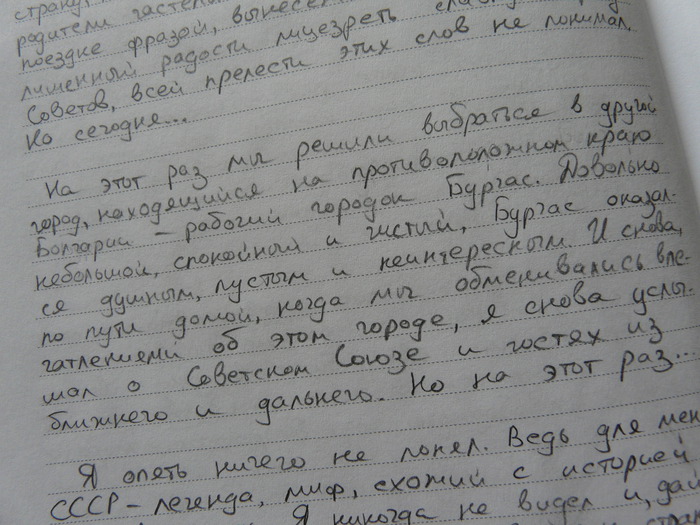 страну
родители частень
поездке фразой, вынесен
лишенный радости лицезреть
Советов, всей прелести этих слов не понимал.
Но сегодня...
На этот раз мы решили выбраться в другой
город, находящийся на противоположном краю
Болгарии – рабочий городок Бургас. Довольно
небольшой, спокойный и чистый, Бургас оказал-
ся душным, пустым и неинтересным. И снова,
по пути домой, когда мы обменивались впе-
чатлениями об этом городе, я снова услы-
шал о Советском Союзе и гостях из
ближнего и дальнего. Но на этот раз...
Я опять ничего не понял. Ведь для мен
СССР – легенда, миф, схожий с историей
Я никогда не видел и, дай